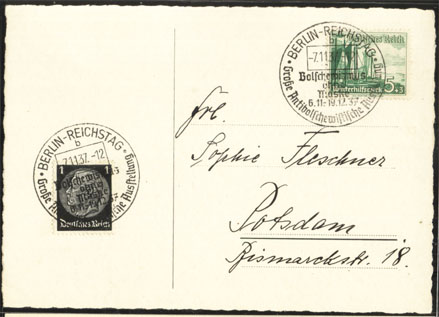 BERLIN-REICHSTAG
b
-7.11.37.
Bolschewismus
ohne
Maske
6.11.-19.12.37
Große Antibolschewistische Ausstellung
Deutsches Reich
Winterhilfswerk 5+3
Frl.
Sophie Fleschner
Potsdam
Bismarckstr. 18.
BERLIN-REICHSTAG
b
-7.11.37.-12
1 1
Bolschewismus
ohne
Maske
Große Antibolschewistische Ausstellung
Deutsches Reich